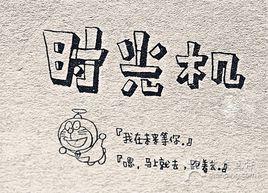 时光机
『我在未来等你.』
『嗯,马上就去,跑着去.』